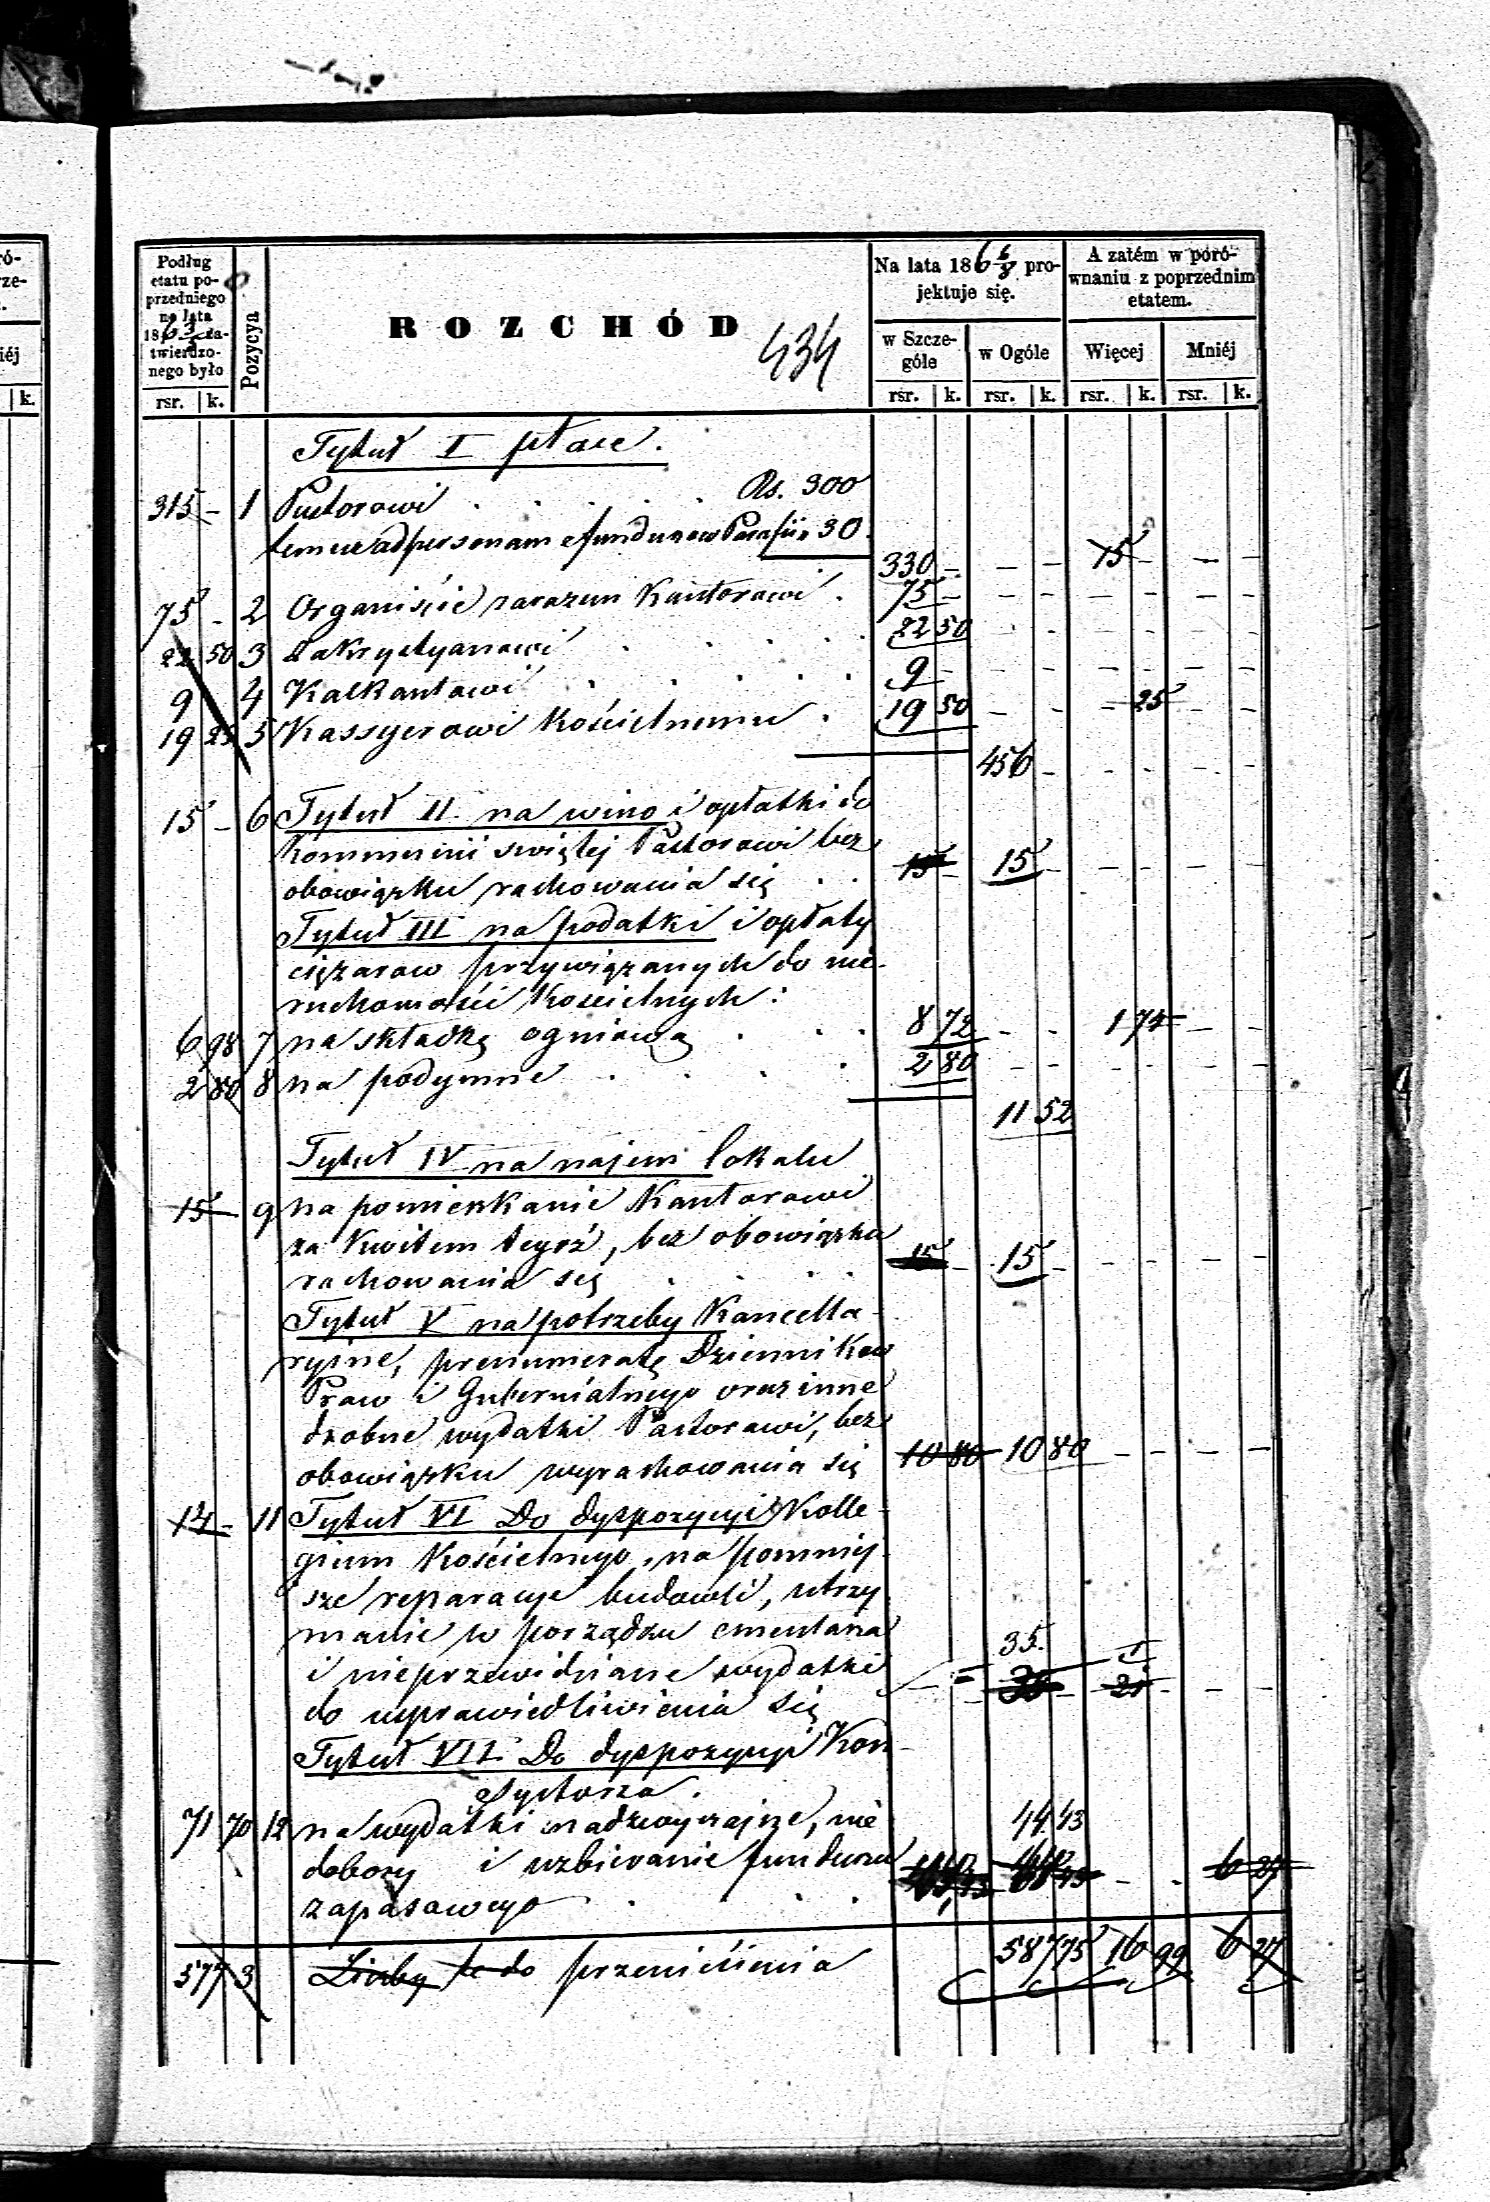 Podług etatu poprzedniego na lata 186 3/5 zatwierdzonego było
Pozycya
ROZCHÓD
434
Na lata 186 6/8 projektuje się.
A zatém w porównaniu z poprzednim etatem.
w Szczególe
w Ogóle
Więcej
Mniéj
rsr. k. rsr. k. rsr. k. rsr. k. rsr. k.
Tytuł I płace.
315 - 1 Pastorowi . . . . . Rs. 300
temuż ad personam z funduszów Parafii „ 30.
330 - - - 15 - - -
75 - 2 Organiście zarazem Kantorowi . 75 - - - - - - -
22 50 3 Zakrystyanowi . . . . 22 50 - - - - - -
9 4 Kalkantowi . . . . . 9 - - - - - - -
19 25 5 Kassyerowi Kościelnemu . 19 50 - - - 25 - -
456 - - - - -
15 - 6 Tytuł II. na wino i opłatki do
Kommunii swiętej Pastorowi bez
obowiązku rachowania się . . 15 - 15 - - - - -
Tytuł III na podatki i opłaty
ciężarow przywiązanych do nie-
ruchomości Kościelnych:
6 98 7 na składkę ogniową . . . 8 72 - - 1 74 - -
2 80 8 na podymne . . . . 2 80 - - - - - -
11 52
Tytuł IV na najem lokalu
15 - 9 na pomieszkanie Kantorowi
za kwitem tegoż, bez obowiązku
rachowania się . . . . 15 - 15 - - - - -
Tytuł V na potrzeby Kancella-
ryine, prenumeratę Dziennikow
Praw i Gubernialnego oraz inne
drobne wydatki Pastorowi, bez
obowiązku wyrachowania się 10 80 10 80 - - - -
14 - 11 Tytuł VI Do dyspozycyi Kolle-
gium Kościelnego, na pomniej-
sze reparacye budowli, utrzy
manie w porządku cmentarza
35.
i nieprzewidziane wydatki
do usprawiedliwienia się
Tytuł VII Do dyspozycyi Kon-
systorza.
71 70 12 na wydatki nadzwyczajne, nie 44 43
dobory i uzbieranie funduszu
6 27
zapasowego . . .
577 3 Liczby te do przeniesienia 587 75 16 99 6 27